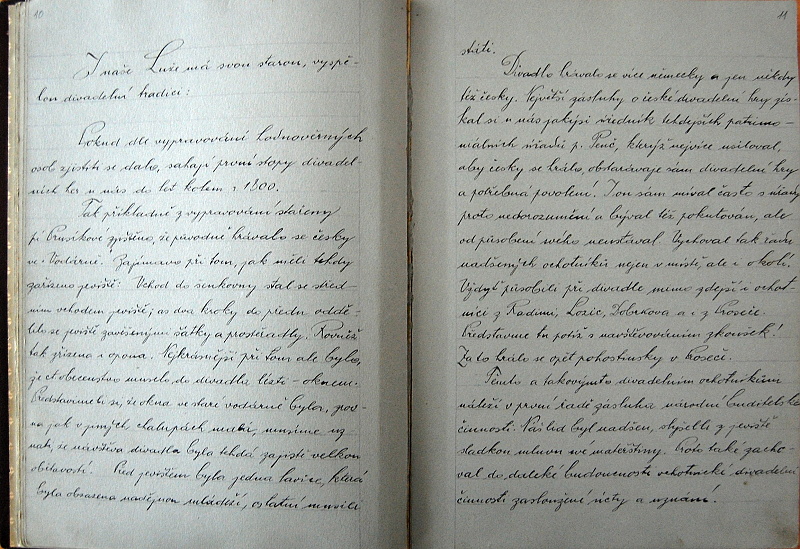 10
I naše Luže má svou starou, vyspě-
lou divadelní tradici:
Pokud dle vypravování hodnověrných
osob zjistiti se dalo, sahají první stopy divadel-
ních her u nás do let kolem r. 1800.
Tak příkladně z vypravování stařeny
pí Prusíkové zjištěno, že původně hrávalo se česky
ve "Vodárně". Zajímavo při tom, jak měli tehdy
zařízeno jeviště: Vchod do senkovny stal se střed-
ním vchodem jeviště; as dva kroky do předu oddě-
lilo se jeviště zavěšenými šátky a prostěradly. Rovněž
tak zřízena i opona. Nejkrásnější při tom ale bylo,
že et obecenstvo muselo do divadla lézti - oknem.
Představíme-li si, že okna ve staré vodárně byla, prov-
na jak v jiných chalupách malá, musíme uz-
nati, že návštěva divadla byla tehdá zajisté velkou
obětavostí. Před jevištěm byla jedna lavice, která
byla obsazena nadějnou mládeží, ostatní museli
11
státi.
Divadlo hrávalo se více německy a jen někdy
též česky. Největší zásluhy o české divadelní hry zís-
kal si u nás jakýsi úředník tehdejších patrimo-
niálních úřadů p. Penč, kterýž nejvíce usiloval,
aby česky se hrálo, obstarávaje sám divadelní hry
a potřebná povolení. Ton sám míval často s úřady
proto nedorozumění a býval též pokutován, ale
od působení svého neustával. Vychoval tak řadu
nadšených ochotníků nejen v místě, ale i okolí.
Vždyť působili při divadle mimo zdejší i ochot-
níci z Radimi, Lozic, Dobrkova a i z Proseče.
Představme tu potíž s navštěvováním zkoušek!
Za to hrálo se opět pohostinsky v Proseči.
Těmto a takovýmto divadelním ochotníkům
náleží v první řadě zásluha národní buditelské
činnosti. Náš lid byl nadšen, slyšel-li z jeviště
sladkou mluvu své mateřštiny. Proto také zacho-
val do daleké budoucnosti ochotnické divadelní
činnosti zasloužené úcty a uznání.